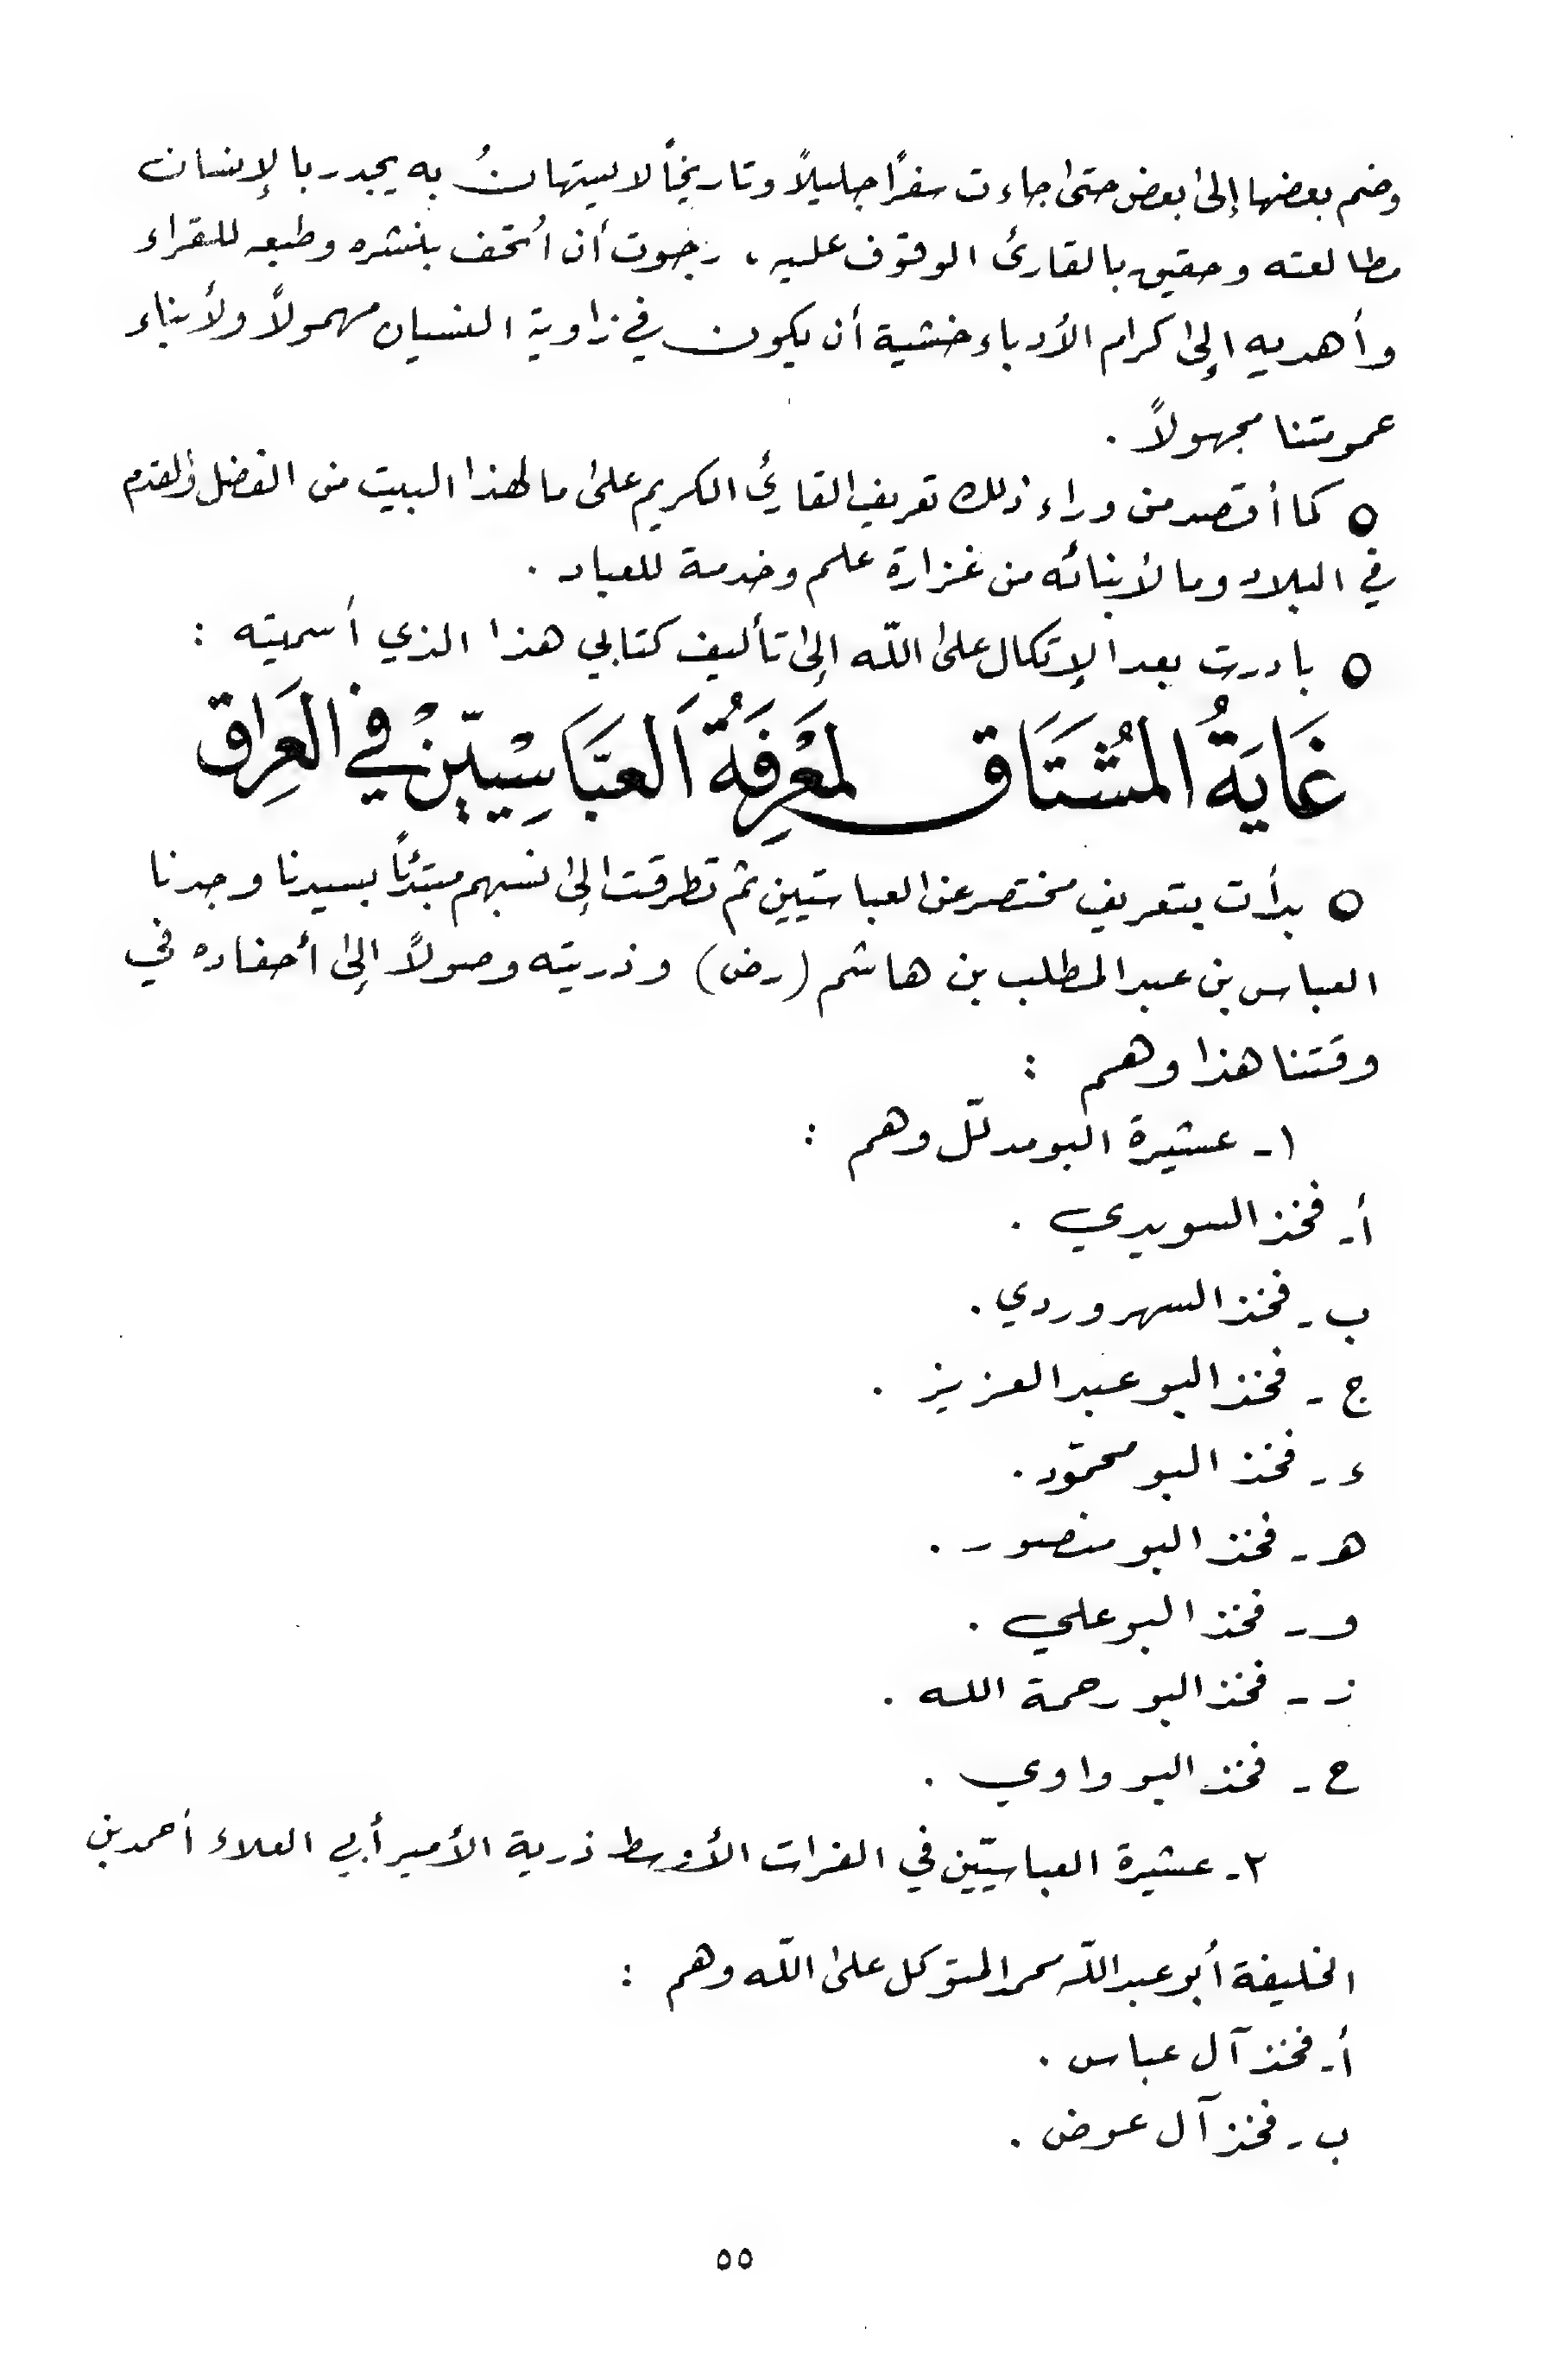 وضم بعضها إلى بعض حتى جاءت سفرًا جليلاً وتاريخاً لا يستهانُ به يجدر بالإنسان
مطالعته وحقيق بالقارئ الوقوف عليه ، رجوت أن أُتحف بنشره وطبعه للقراء
وأهديه إلى كرام الأدباء خشية أن يكون في زاوية النسيان مهمولاً ولأبناء
عمومتنا مجهولاً .
o كما أقصد من وراء ذلك تعريف القارئ الكريم على ما لهذا البيت من الفضل والقدم
في البلاد وما لأبنائه من غزارة علم وخدمة للعباد .
o بادرت بعد الإتكال على اللّه إلى تأليف كتابي هذا الذي أسميته :
غَايَةُ المُشتَاق لمَعْرِفَةُ العبَّاسِيّين في العِراق
o بدأت بتعريف مختصر عن العباسيين ثم تطرقت إلى نسبهم مبتدئاً بسيدنا وجدنا
العباس بن عبد المطلب بن هاشم (رض) وذريته وصولاً إلى أحفاده في
وقتنا هذا وهم :
١ـ عشيرة البومدلّل وهم :
أـ فخذ السويدي .
ب ـ فخذ السهروردي .
ج ـ فخذ البو عبد العزيز .
ء ـ فخذ البو محمّود .
هـ ـ فخذ البو منصور .
و ـ فخذ البو علي .
ز ـ فخذ البو رحمة الله .
ح ـ فخذ البو واوي .
٢ـ عشيرة العباسيّين في الفرات الأوسط ذرية الأمير أبي العلاء أحمد بن
الخليفة أبو عبد اللّه محمد المتوكل على اللّه وهم :
أـ فخذ آل عباس .
ب ـ فخذ آل عوض .
٥٥